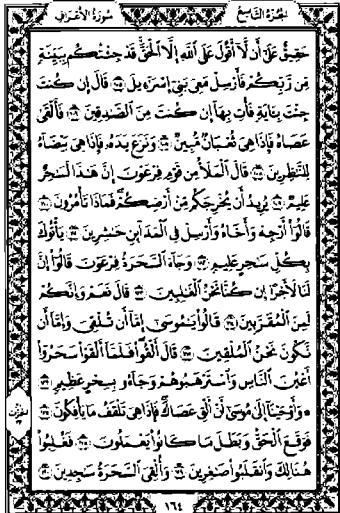 الجزء التاسع
سورة الأعراف
حَقِيقٌ عَلَىٰٓ أَن لَّآ أَقُولَ عَلَى ٱللَّهِ إِلَّا ٱلۡحَقَّۚ قَدۡ جِئۡتُكُم بِبَيِّنَةٖ
مِّن رَّبِّكُمۡ فَأَرۡسِلۡ مَعِيَ بَنِيٓ إِسۡرَٰٓءِيلَ ١٠٥ قَالَ إِن كُنتَ
جِئۡتَ بِـَٔايَةٖ فَأۡتِ بِهَآ إِن كُنتَ مِنَ ٱلصَّٰدِقِينَ ١٠٦ فَأَلۡقَىٰ
عَصَاهُ فَإِذَا هِيَ ثُعۡبَانٞ مُّبِينٞ ١٠٧ وَنَزَعَ يَدَهُۥ فَإِذَا هِيَ بَيۡضَآءُ
لِلنَّٰظِرِينَ ١٠٨ قَالَ ٱلۡمَلَأُ مِن قَوۡمِ فِرۡعَوۡنَ إِنَّ هَٰذَا لَسَٰحِرٌ
عَلِيمٞ ١٠٩ يُرِيدُ أَن يُخۡرِجَكُم مِّنۡ أَرۡضِكُمۡۖ فَمَاذَا تَأۡمُرُونَ ١١٠
قَالُوٓاْ أَرۡجِهۡ وَأَخَاهُ وَأَرۡسِلۡ فِي ٱلۡمَدَآئِنِ حَٰشِرِينَ ١١١ يَأۡتُوكَ
بِكُلِّ سَٰحِرٍ عَلِيمٖ ١١٢ وَجَآءَ ٱلسَّحَرَةُ فِرۡعَوۡنَ قَالُوٓاْ إِنَّ
لَنَا لَأَجۡرًا إِن كُنَّا نَحۡنُ ٱلۡغَٰلِبِينَ ١١٣ قَالَ نَعَمۡ وَإِنَّكُمۡ
لَمِنَ ٱلۡمُقَرَّبِينَ ١١٤ قَالُواْ يَٰمُوسَىٰٓ إِمَّآ أَن تُلۡقِيَ وَإِمَّآ أَن
نَّكُونَ نَحۡنُ ٱلۡمُلۡقِينَ ١١٥ قَالَ أَلۡقُواْۖ فَلَمَّآ أَلۡقَوۡاْ سَحَرُوٓاْ
أَعۡيُنَ ٱلنَّاسِ وَٱسۡتَرۡهَبُوهُمۡ وَجَآءُو بِسِحۡرٍ عَظِيمٖ ١١٦
۞ وَأَوۡحَيۡنَآ إِلَىٰ مُوسَىٰٓ أَنۡ أَلۡقِ عَصَاكَۖ فَإِذَا هِيَ تَلۡقَفُ مَا يَأۡفِكُونَ ١١٧
فَوَقَعَ ٱلۡحَقُّ وَبَطَلَ مَا كَانُواْ يَعۡمَلُونَ ١١٨ فَغُلِبُواْ
هُنَالِكَ وَٱنقَلَبُواْ صَٰغِرِينَ ١١٩ وَأُلۡقِيَ ٱلسَّحَرَةُ سَٰجِدِينَ ١٢٠
١٦٤